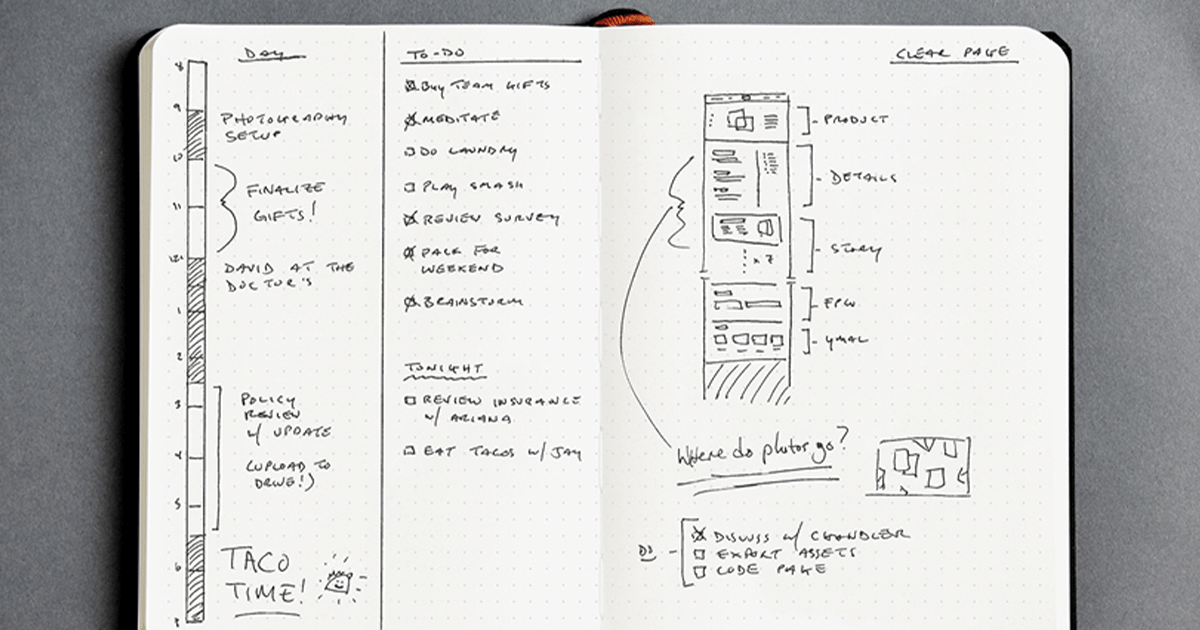 DAY
8
9
PHOTOGRAPHY
SETUP
10
FINALIZE
GIFTS!
11
12
DAVID AT THE
DOCTOR'S
1
2
POLICY
REVIEW
W/ UPDATE
(UPLOAD TO
DRIVE!)
3
4
5
TACO
TIME!
6
TO-DO
BUY TEAM GIFTS
MEDITATE
DO LAUNDRY
PLAY SMASH
REVIEW SURVEY
PACK FOR
WEEKEND
BRAINSTORM
TONIGHT
REVIEW INSURANCE
W/ ARIANA
EAT TACOS W/ JAY
CLEAR PAGE
PRODUCT
DETAILS
x 7
STORY
FPW
YMAL
Where do photos go?
DISCUSS W/ CHANDLER
EXPORT ASSETS
CODE PAGE